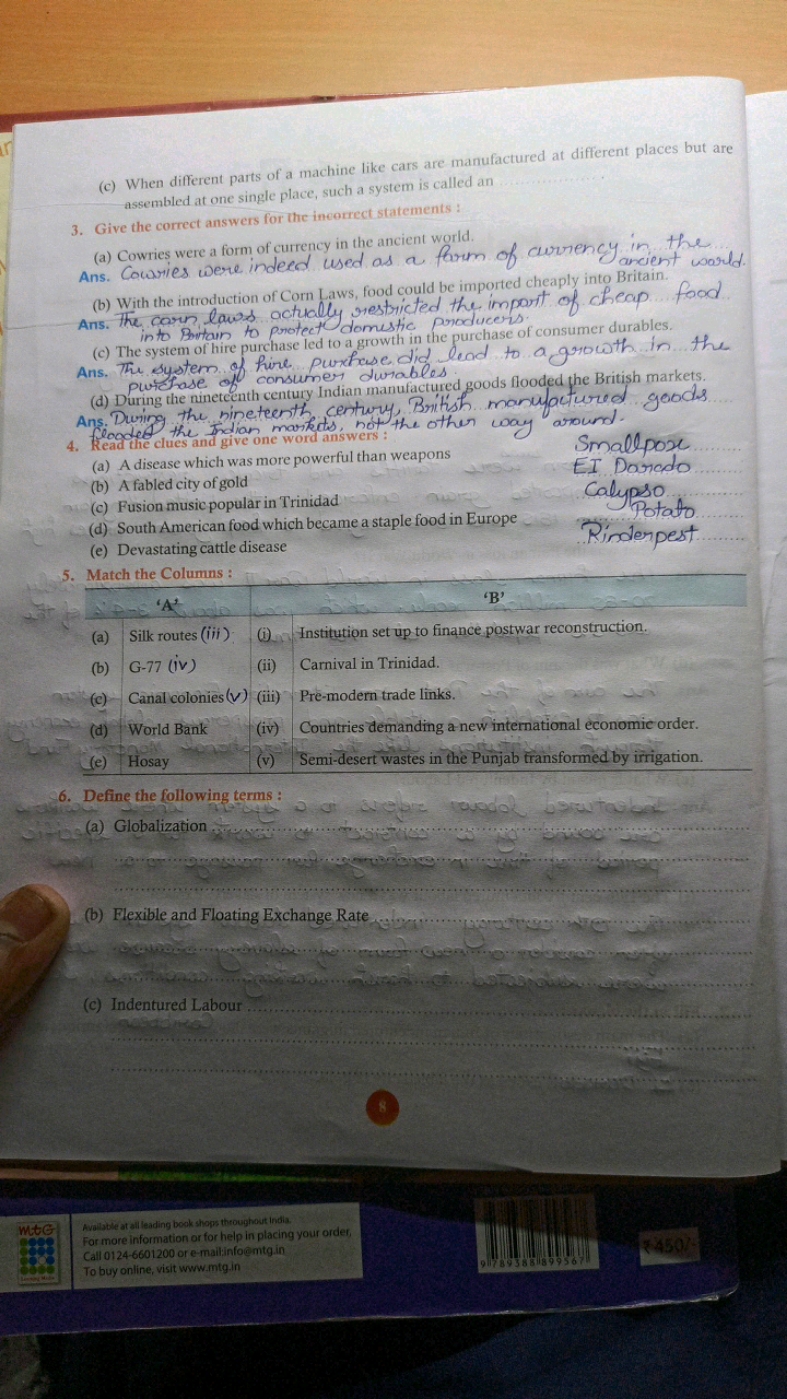 (c) When different parts of a machine like cars are manufactured at different places but are
assembled at one single place, such a system is called an ....................
3. Give the correct answers for the incorrect statements :
(a) Cowries were a form of currency in the ancient world.
Ans. Cowries were indeed used as a form of currency in the
ancient world.
(b) With the introduction of Corn Laws, food could be imported cheaply into Britain.
Ans. The corn laws actually restricted the import of cheap food
into Britain to protect domestic producers.
(c) The system of hire purchase led to a growth in the purchase of consumer durables.
Ans. The system of hire purchase did lead to a growth in the
purchase of consumer durables.
(d) During the nineteenth century Indian manufactured goods flooded the British markets.
Ans. During the nineteenth century, British manufactured goods
flooded the Indian markets, not the other way around.
4. Read the clues and give one word answers :
(a) A disease which was more powerful than weapons Smallpox
(b) A fabled city of gold EI Dorado
(c) Fusion music popular in Trinidad Calypso
(d) South American food which became a staple food in Europe Potato
(e) Devastating cattle disease Rinderpest
5. Match the Columns :
'A' 'B'
(a) Silk routes (iii) (i) Institution set up to finance postwar reconstruction.
(b) G-77 (iv) (ii) Carnival in Trinidad.
(c) Canal colonies (v) (iii) Pre-modern trade links.
(d) World Bank (iv) Countries demanding a new international economic order.
(e) Hosay (v) Semi-desert wastes in the Punjab transformed by irrigation.
6. Define the following terms :
(a) Globalization
(b) Flexible and Floating Exchange Rate
(c) Indentured Labour
8
mtG
Available at all leading book shops throughout India.
For more information or for help in placing your order,
Call 0124-6601200 or e-mail:info@mtg.in
To buy online, visit www.mtg.in
9 789388 899567
₹450/-